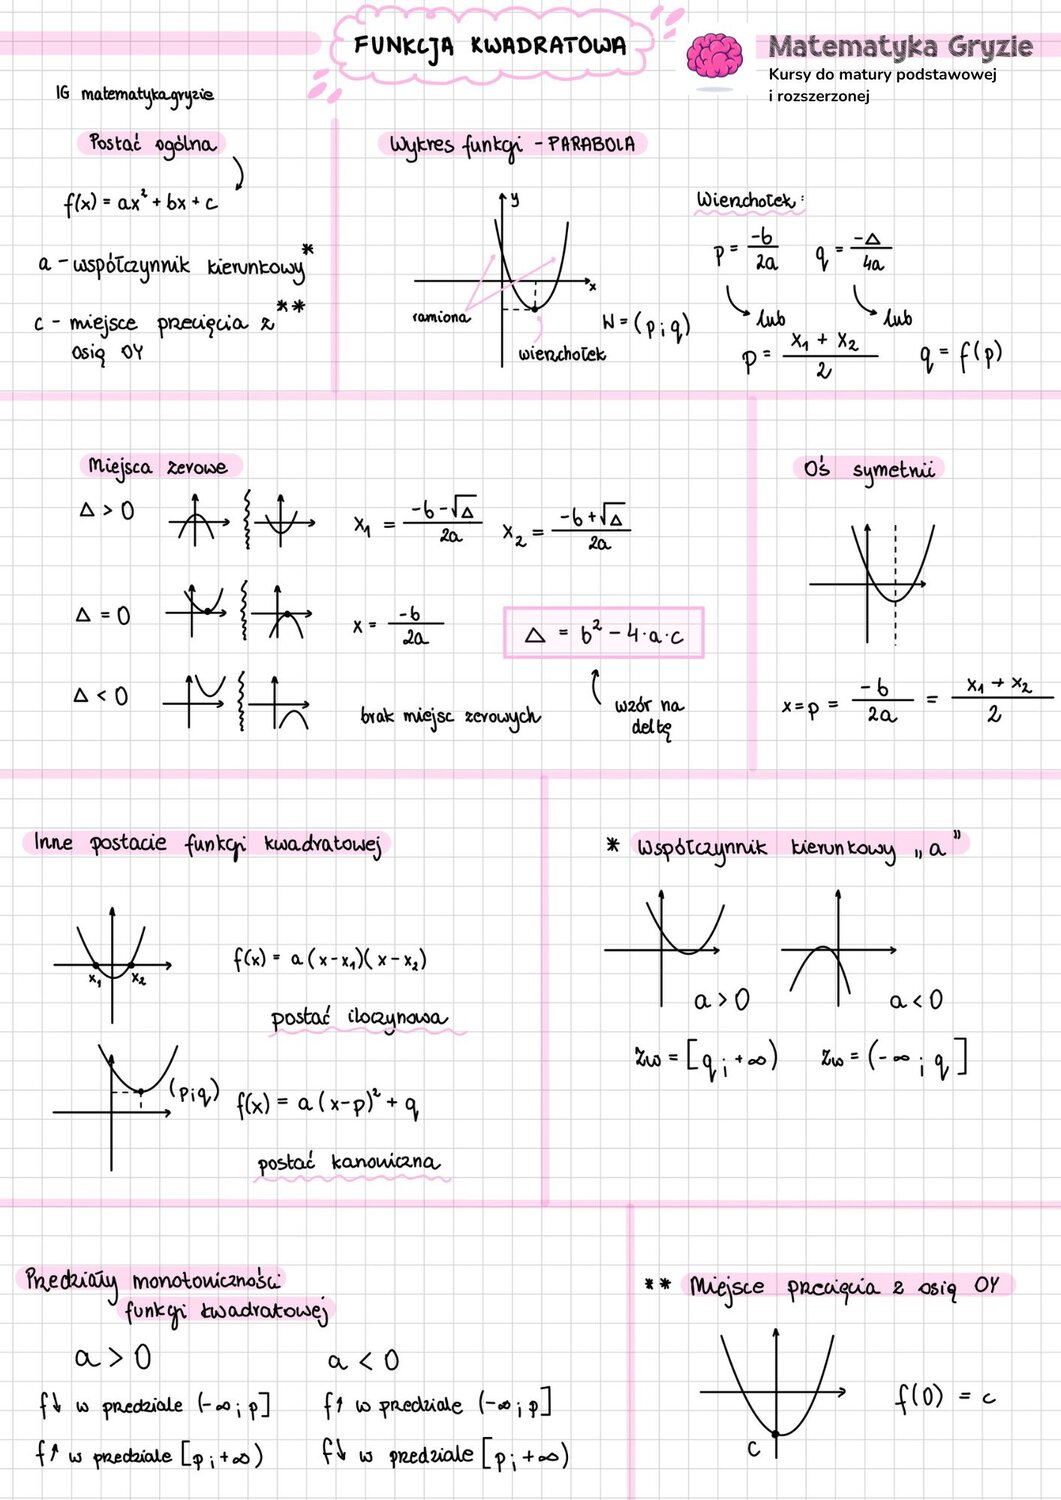 FUNKCJA KWADRATOWA
Matematyka Gryzie
Kursy do matury podstawowej
i rozszerzonej
IG matematykagryzie
Postać ogólna
f(x) = ax² + bx + c
a - współczynnik kierunkowy*
c - miejsce przecięcia z **
osią OY
Wykres funkcji - PARABOLA
y
x
ramiona
wierzchołek
W = (p; q)
Wierzchołek:
p = -b/2a
q = -Δ/4a
lub
lub
p = (x₁ + x₂)/2
q = f(p)
Miejsca zerowe
Δ > 0
x₁ = (-b-√Δ)/2a
x₂ = (-b+√Δ)/2a
Δ = 0
x = -b/2a
Δ = b² - 4·a·c
wzór na
deltę
Δ < 0
brak miejsc zerowych
Oś symetrii
x = p = -b/2a = (x₁ + x₂)/2
Inne postacie funkcji kwadratowej
x₁
x₂
f(x) = a(x-x₁)(x-x₂)
postać iloczynowa
(p;q)
f(x) = a(x-p)² + q
postać kanoniczna
* Współczynnik kierunkowy „a”
a > 0
a < 0
Zw = [q; +∞)
Zw = (-∞; q]
Przedziały monotoniczności
funkcji kwadratowej
a > 0
f↓ w przedziale (-∞; p]
f↑ w przedziale [p; +∞)
a < 0
f↑ w przedziale (-∞; p]
f↓ w przedziale [p; +∞)
** Miejsce przecięcia z osią OY
c
f(0) = c